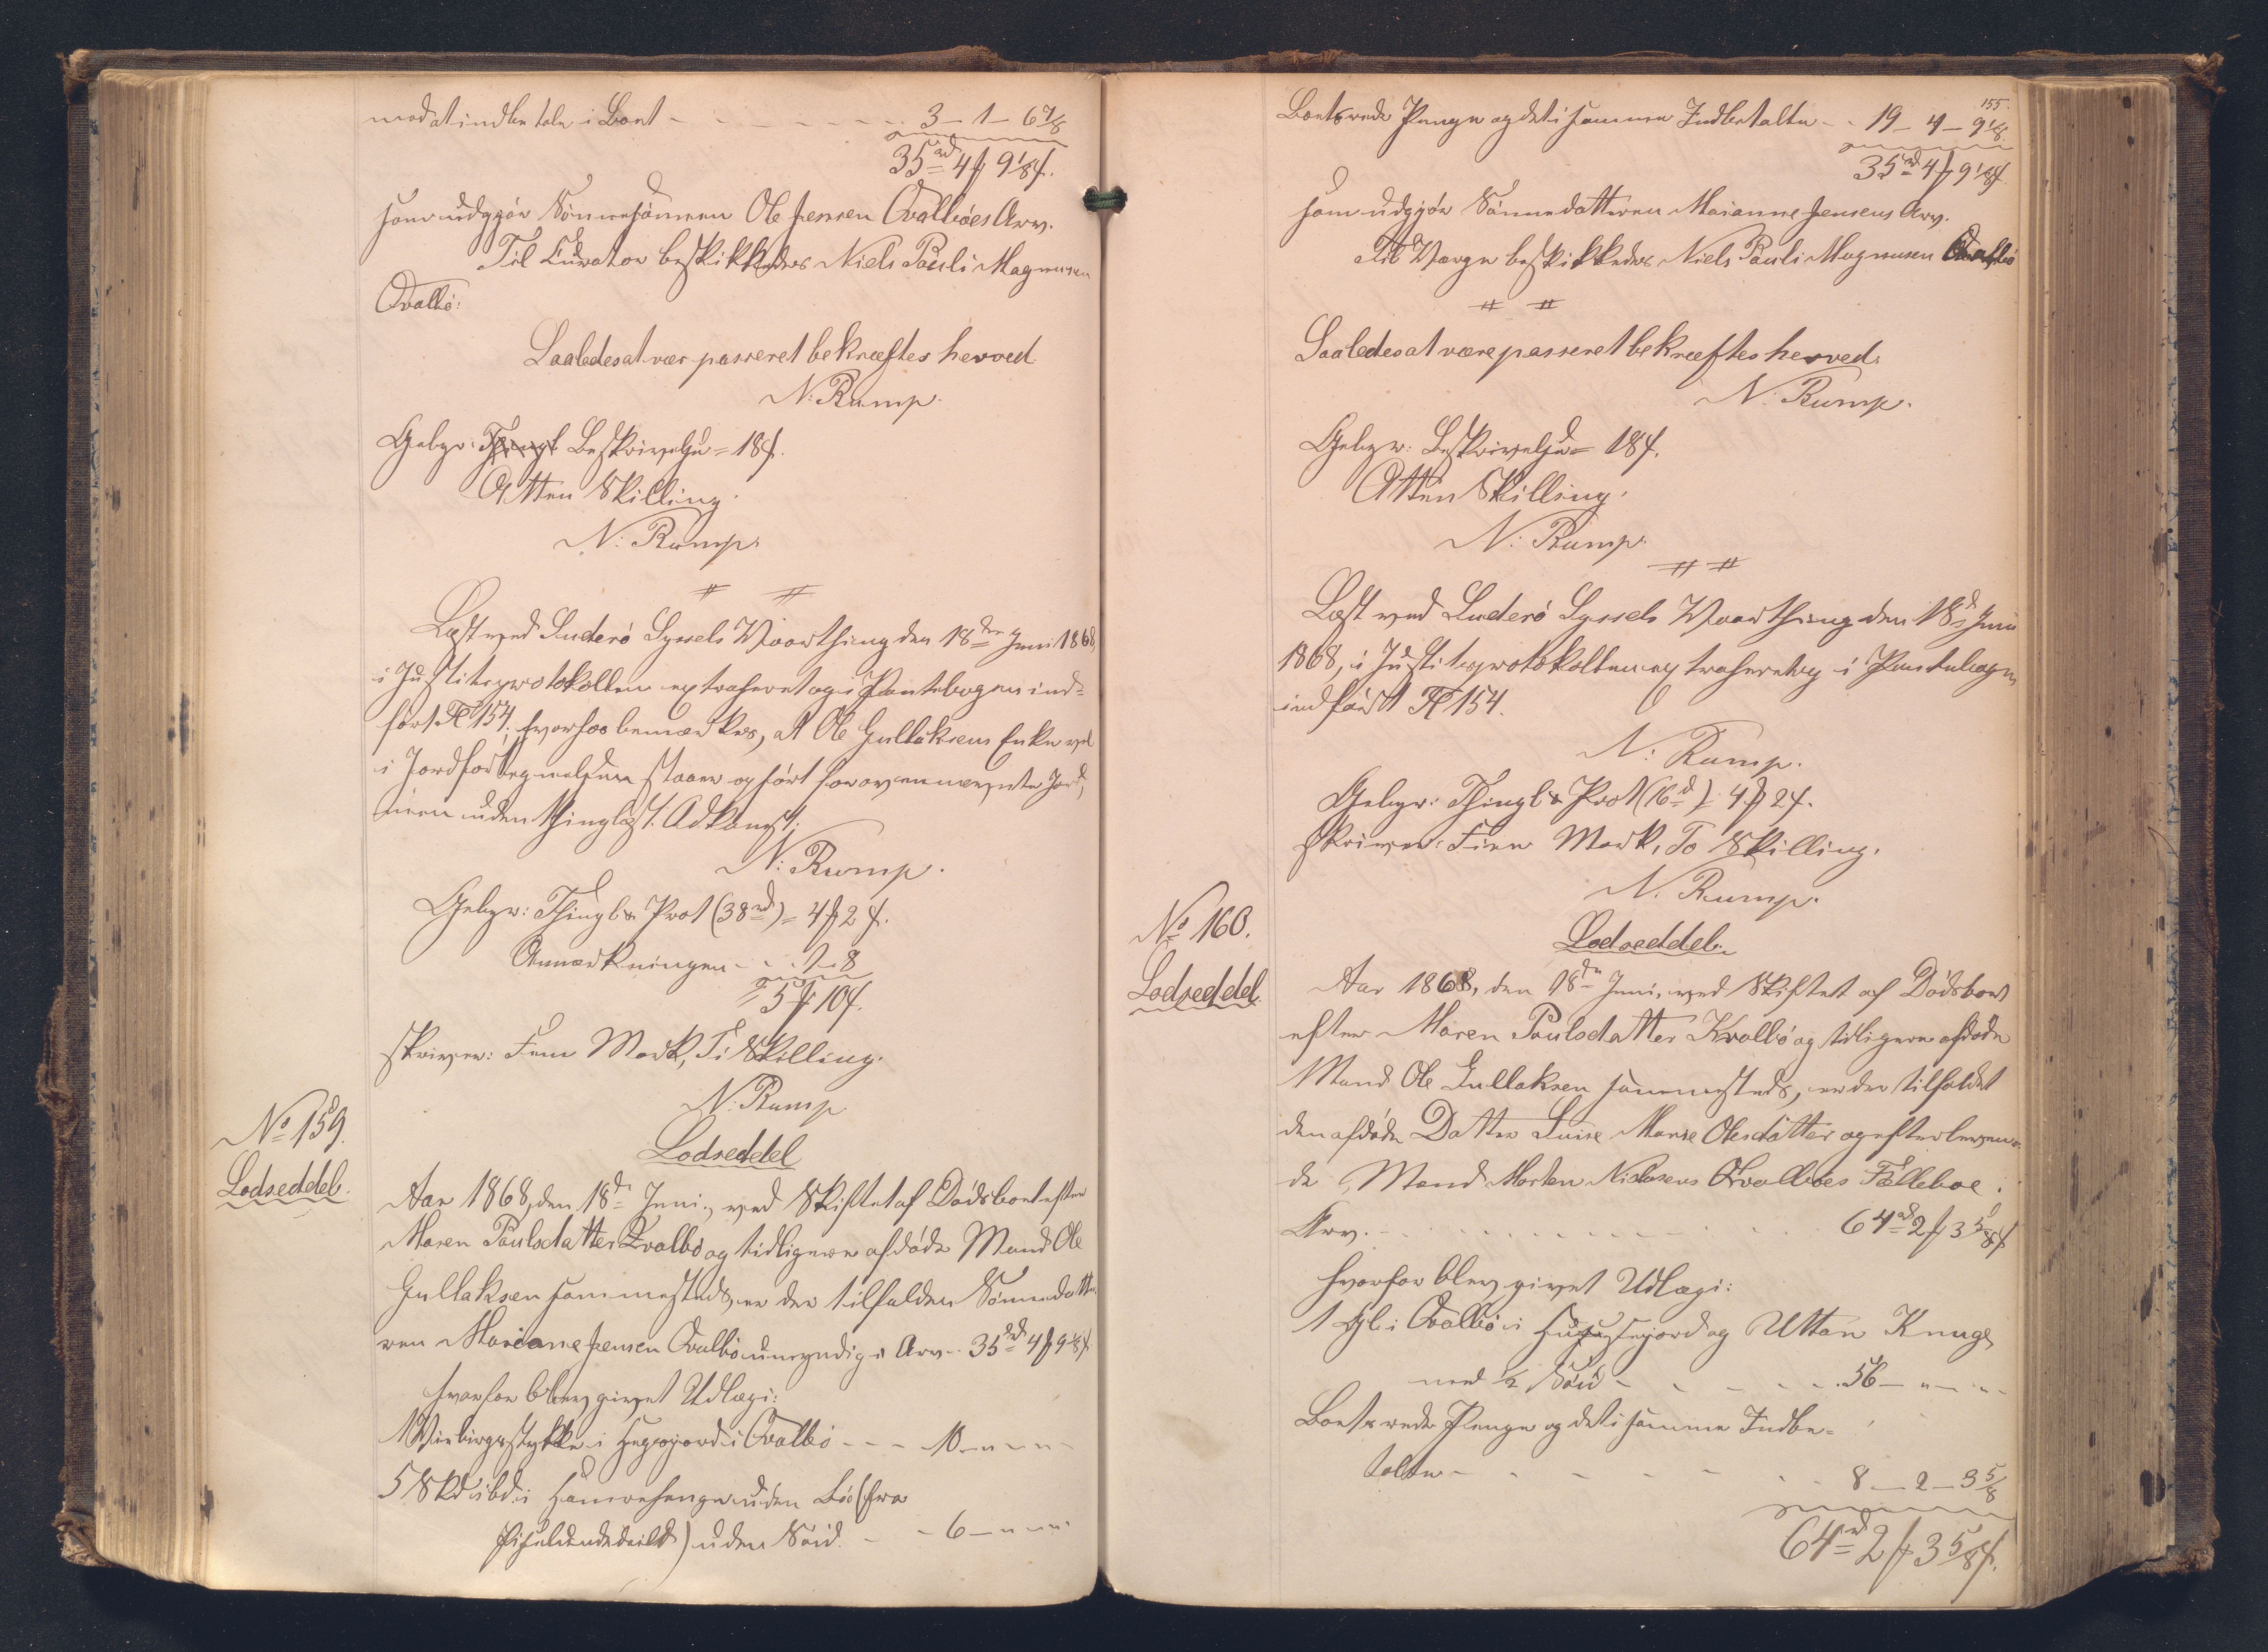 mod at indbetale i Boet - - - - - - - 3 - 1 - 6 7/8
35 rd 4 ℳ 9 1/8 ß.
som udgjør Sønnesønnen Ole Jensen Qvalbøes Arv.
Til Curator beskikkedes Niels Pauli Magnusen
Qvalbø:
Saaledes at vær passeret bekræftes herved
N: Rump.
Gebyr: Beskrivelse = 18 ß.
Atten Skilling.
N: Rump.
Læst ved Suderø Syssels Vaarthing den 18den Juni 1868,
i Justitsprotokollen extraheret og i Pantebogen ind-
ført Fol 154; hvorhos bemærkes, at Ole Gullaksens Enke vel
i Jordfortegnelsen staaer opført for ovennævnte Jord,
men uden thinglæst Adkomst.
N: Rump.
Gebyr: Thingl & Prot (38 rd) = 4 ℳ 2 ß.
Anmærkningen - - 1 - 8
= 5 ℳ 10 ß.
skriver: Fem Mark, Ti Skilling.
N: Rump
No 159.
Lodseddel.
Lodseddel
Aar 1868, den 18de Juni, ved Skiftet af Dødsboet efter
Maren Poulsdatter Qvalbø og tidligere afdøde Mand Ole
Gullaksen sammesteds, er der tilfalden Sønnedatte-
ren Marianne Jensen Qvalbø umyndig i Arv - 35 rd 4 ℳ 9 1/8 ß
hvorfor blev givet Udlæg i:
1 Virkingsstykke i Hegnjord i Qvalbø - - - 10 - " - " -
5 Skd ibd i Hamrehauge uden Lod (fra
) uden Søid. - - 6 - " - " -
155.
Boets rede Penge og det i samme Indbetalte - - 19 - 4 - 9 1/8.
35 rd 4 ℳ 9 1/8 ß
som udgjør Sønnedatteren Marianne Jensens Arv.
Til Værge beskikkedes Niels Pauli Magnusen Qvalbø
Saaledes at være passeret bekræftes herved.
N: Rump.
Gebyr: Beskrivelse = 18 ß.
Atten Skilling.
N: Rump.
Læst ved Suderø Syssels Vaarthing den 18d Juni
1868, i Justitsprotokollen extraheret og i Pantebogen
indført Fol 154.
N: Rump.
Gebyr: Thingl & Prot (16 rd) = 4 ℳ 2 ß.
skriver: Fire Mark, To Skilling.
N. Rump.
No 160.
Lodseddel.
Lodseddel.
Aar 1868, den 18de Juni, ved Skiftet af Dødsboet
efter Maren Poulsdatter Kvalbø og tidligere afdøde
Mand Ole Gullaksen sammesteds, er der tilfaldet
den afdøde Datter Luise Marie Olesdatter og efterleven-
de Mand Morten Niclasens Qvalbøes Fælleboe i
Arv. - - - - - - 64 rd 2 ℳ 3 5/8 ß
hvorfor blev givet Udlæg i:
1 Gl. i Qvalbø i Huusejord og Uttan Knuge
med 1/2 Søid - - - - - 56 - " - " -
Boets rede Penge og det i samme Indbe-
talte - - - - - - 8 - 2 - 3 5/8
64 rd 2 ℳ 3 5/8 ß.